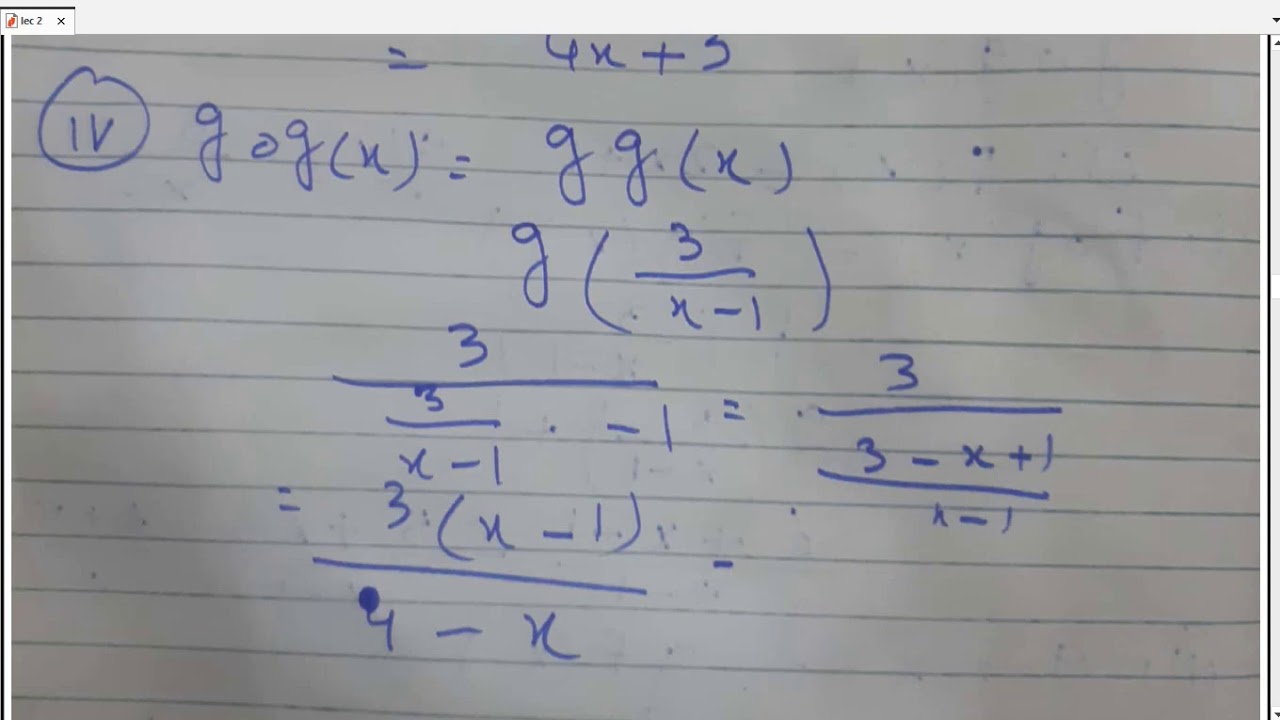 lec 2
= 4x + 5
IV g o g(x) = g g (x)
g ( 3 / x - 1 )
3 / ( 3 / x - 1 - 1 ) = 3 / ( 3 - x + 1 / x - 1 )
= 3 (x - 1) / 4 - x